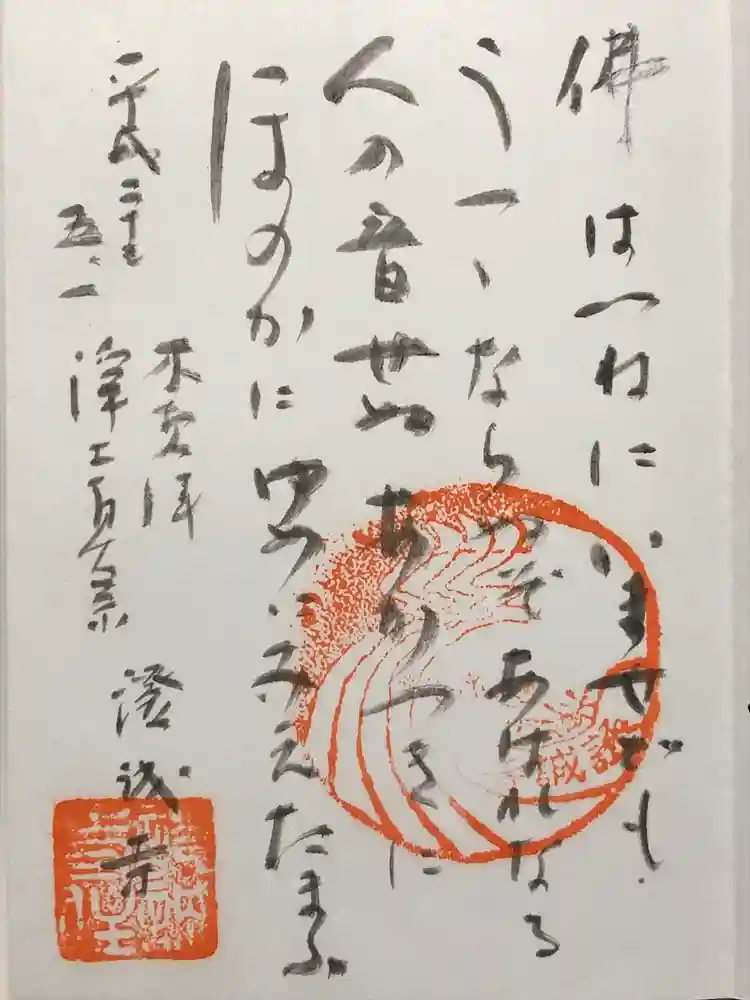 佛はつねにいませども
うつゝならぬぞあはれなる
人の音せぬあかつきに
ほのかに夢にみえたまふ
平成二十七
五、一
本願寺
浄土真宗
澄誠寺